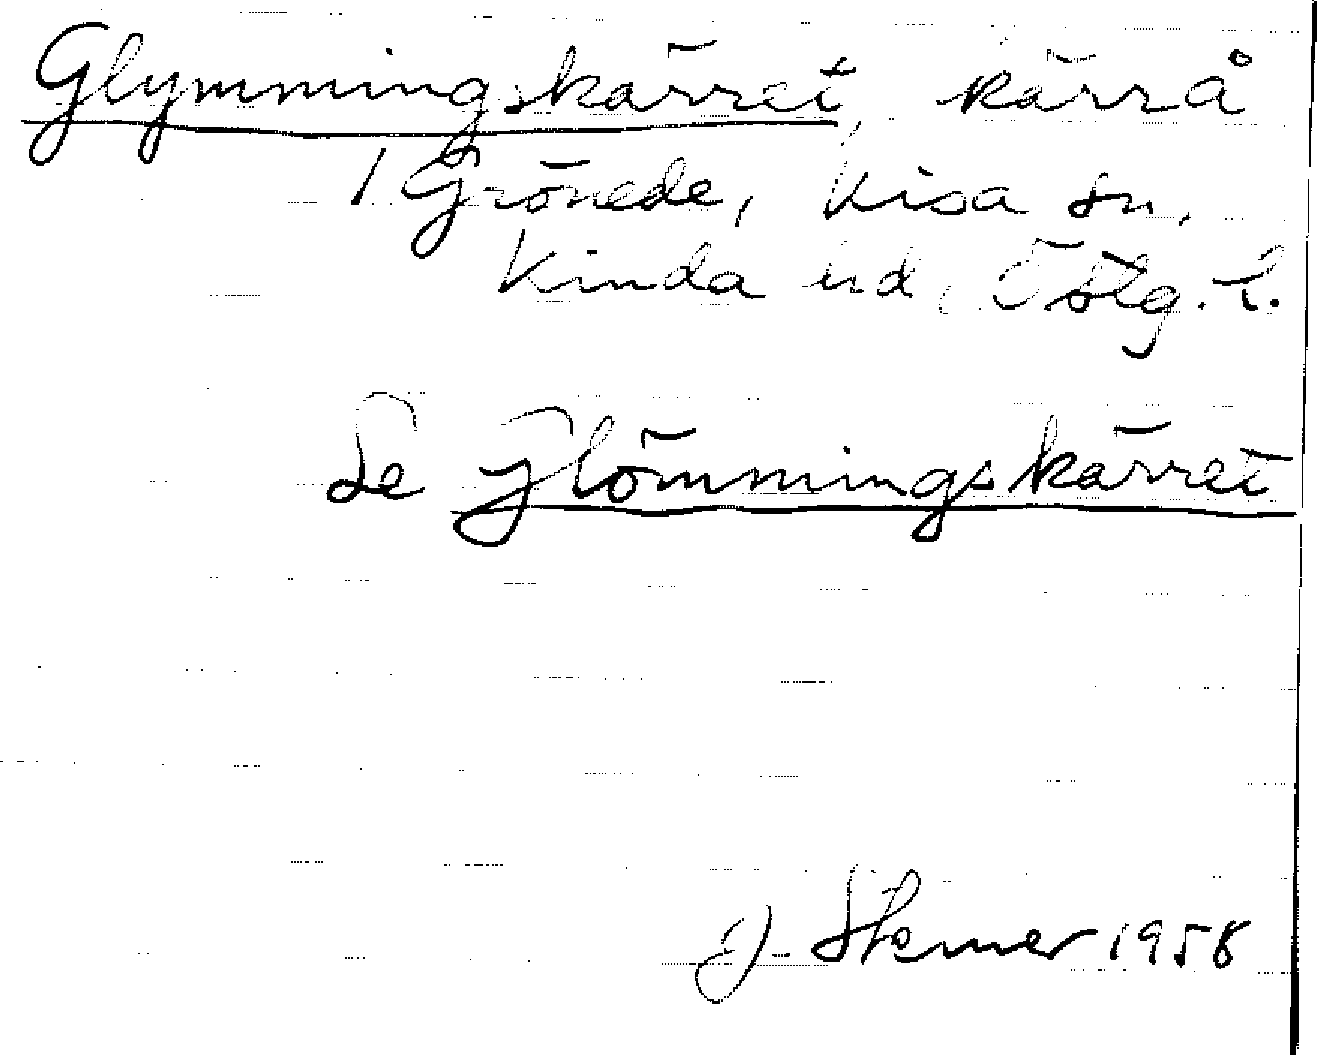 Glymmingskärret, kärrå
i Grönede, Kisa sn,
Kinda hd, Östg. l.
Se Jlömmingskärret
J. Sterner 1958